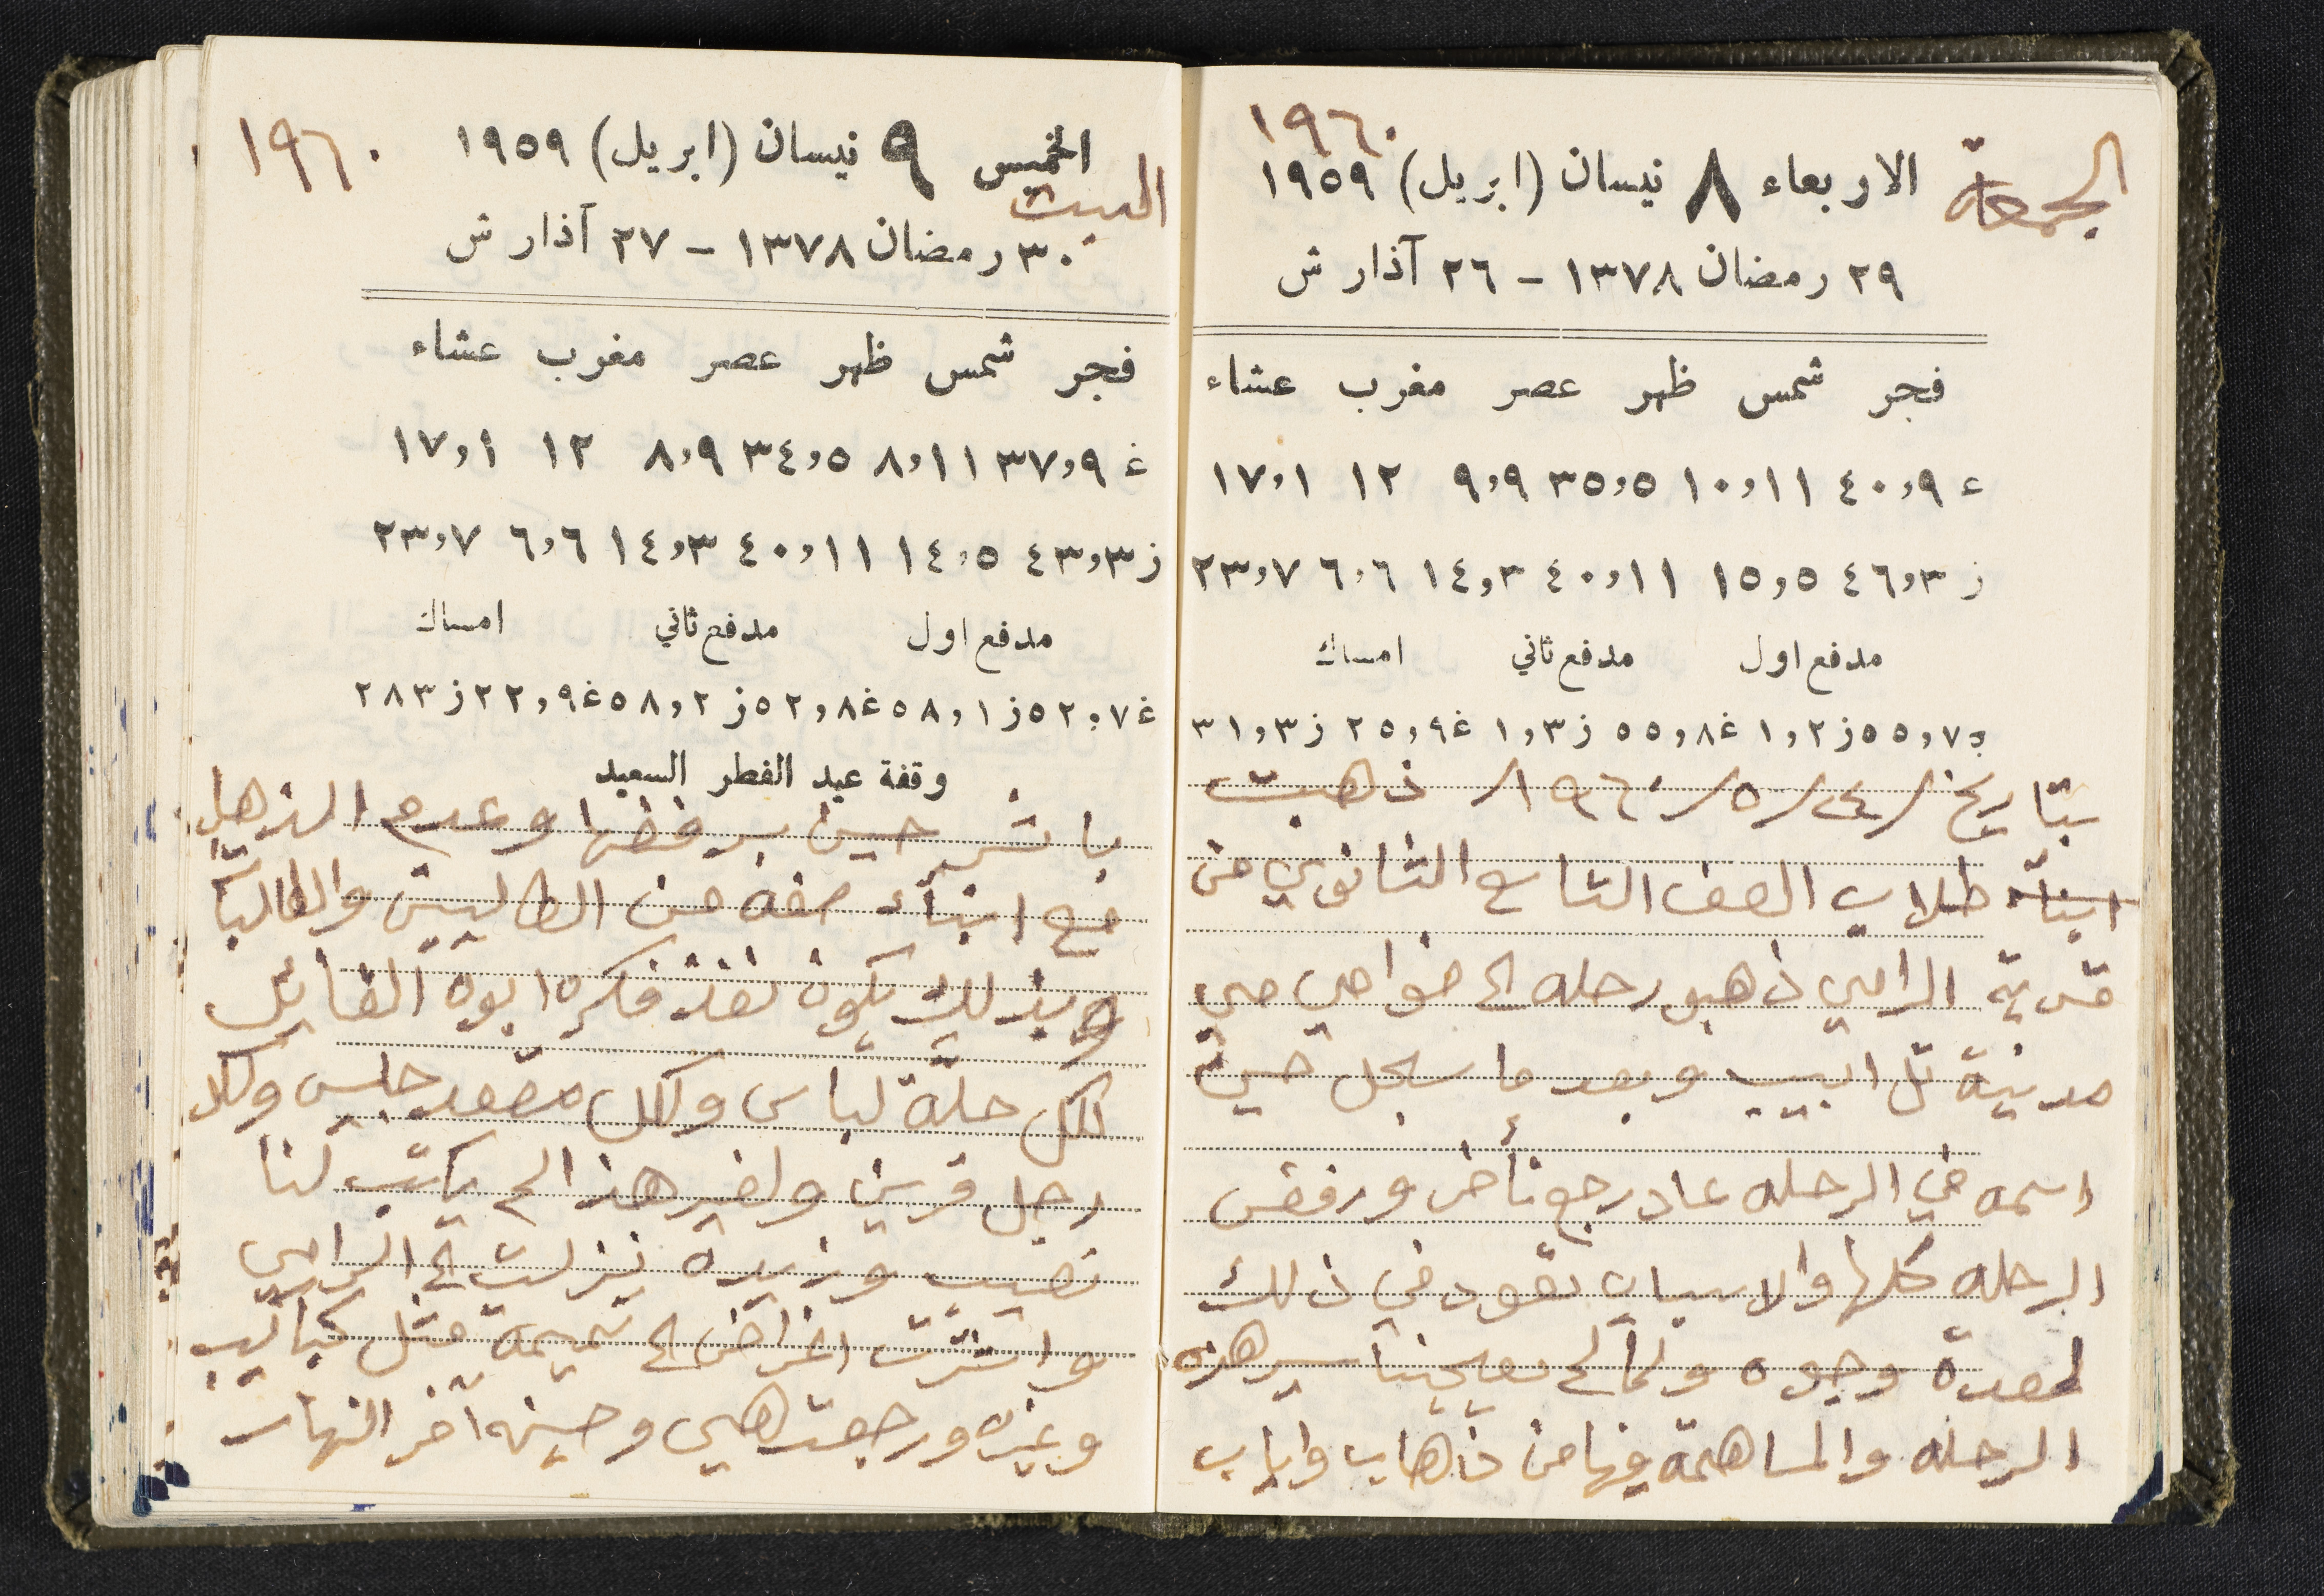 ١٩٦٠
الجمعة
الاربعاء ٨ نيسان (ابريل) ١٩٥٩
٢٩ رمضان ١٣٧٨ – ٢٦ آذار ش
فجر شمس ظهر عصر مغرب عشاء
٤٠,٩ ١٠,١١ ٣٥,٥ ٩,٩ ١٢ ١٧,١
ز ٤٦,٣ ١٥,٥ ٤٠,١١ ١٤,٣ ٦,٦ ٢٣,٧
مدفع اول مدفع ثاني امساك
٥٥,٧ ز ١,٢ غ ٥٥,٨ ز ١,٣ غ ٢٥,٩ ز ٣١,٣
بتاريخ /٢٤/٥/١٩٦٠/ ذهبت
ابناء طلاب الصف التاسع الثانوي من
قرية الرامي ذهبو رحله الى ضواحي
مدنية تل ابيب وبعد ما سجل حسين
اسمه في الرحله عاد رجع تأخر ورفض
الرحله كلها والاسباب تعود في ذلك
لعدة وجوه ولما لم يعجبنا سير هذه
الرحله والمساهمة فيها من ذهاب واياب
١٩٦٠
الخميس ٩ نيسان (ابريل) ١٩٥٩
السبت
٣٠ رمضان ١٣٧٨ – ٢٧ آذار ش
فجر شمس ظهر عصر مغرب عشاء
غ ٣٧,٩ ٨,١١ ٣٤,٥ ٨,٩ ١٢ ١٧,١
ز ٤٣,٣ ١٤,٥ ٤٠,١١ ١٤,٣ ٦,٦ ٢٣,٧
مدفع اول مدفع ثاني امساك
غ ٥٢,٧ ز ٥٨,١ غ ٥٢,٨ ز ٥٨,٢ غ ٢٢,٩ ز ٢٨٣
وقفة عيد الفطر السعيد
باشر حسين برفضها وعدم
مع ابناء صفه من الطالبين والطالبات
وبذلك يكون نفذ فكرة ابوه القايل
لكل حلة لباس ولكل مقعد جليس ولكل
رجل قرين ولغير هذا لم يكتب لنا
نصيب وزبيده نزلت الى الرامي
واشترت اغراض الى مثل
وغيره ورجعت هي وحسين آخر النهار